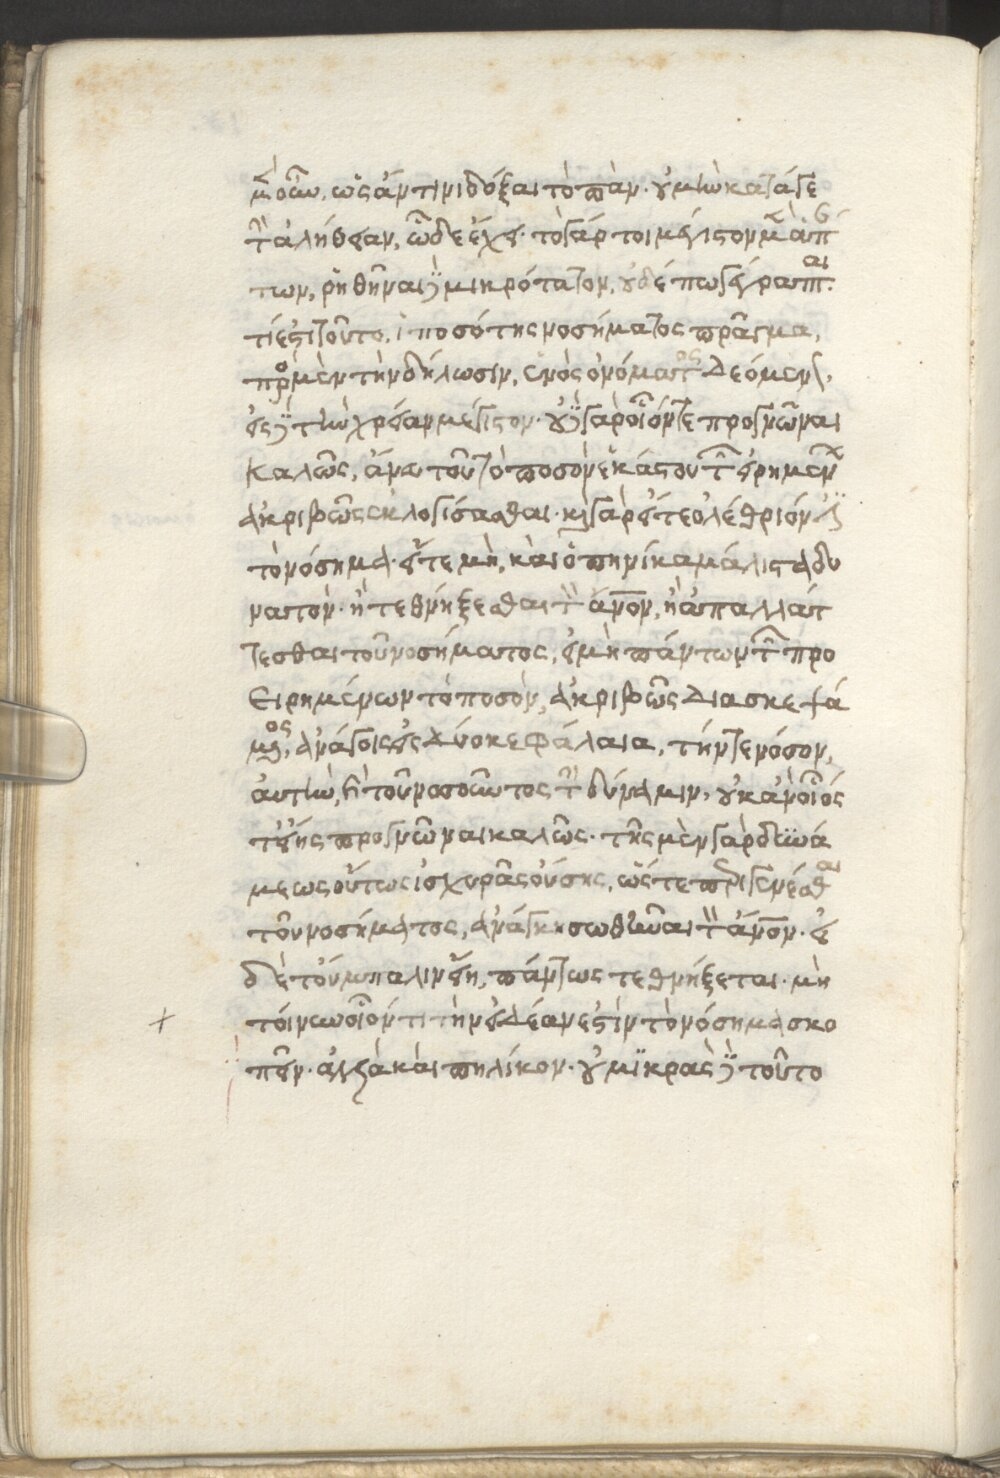 μὲν οὖν, ὡς ἄν τινι δόξαι τὸ πᾶν. οὐ μὴν κατά γε
τὴν ἀλήθειαν, ὧδε ἔχει. τὸ γάρ τοι μέγιστον μὲν ἁπάν
των, ῥηθῆναι δὲ μικρότατον, οὐδέπως εἴρηται.
τί ἐστι τοῦτο, ἡ ποσότης νοσήματος πρᾶγμα,
πρὸς μὲν τὴν δήλωσιν, ἑνὸς ὀνόματος δεόμενον,
εἰς δὲ τὴν χρείαν μέγιστον. οὐδὲ γὰρ οἷόν τε προγνῶναι
καλῶς, ἄνω τοῦ τὸ ποσὸν ἑκάστου τῶν εἰρημένων
ἀκριβῶς ἐκλογίσασθαι. καὶ γὰρ εἴτε ὀλέθριόν ἐστι
τὸ νόσημα. εἴτε μὴ, καὶ ὁπηνίκα μάλιστα δυ
νατόν. ἢ τεθνήξεσθαι τὸν ἄνθρωπον, ἢ ἀπαλλάτ
τεσθαι τοῦ νοσήματος, εἰ μὴ πάντων τῶν προ
ειρημένων τὸ ποσὸν, ἀκριβῶς διασκεψά
μενος, ἀνάγοις εἰς δύο κεφάλαια, τήν τε νόσον,
αὐτὴν, καὶ τοῦ νοσοῦντος τὴν δύναμιν, οὐκ ἂν οἷός
τ' εἴης προγνῶναι καλῶς. τῆς μὲν γὰρ δυνά
μεως οὕτως ἰσχυρᾶς οὔσης, ὥστε περιγενέσθαι
τοῦ νοσήματος, ἀνάγκη σωθῆναι τὸν ἄνθρωπον. εἰ
δὲ τοὔμπαλιν εἴη, πάντως τεθνήξεται. μὴ
τοίνυν οἷόν τι τὴν εἰδέαν ἐστὶν τὸ νόσημα σκο
πεῖν. ἀλλὰ καὶ πηλίκον. οὐ μικρὰς δὲ τοῦτο